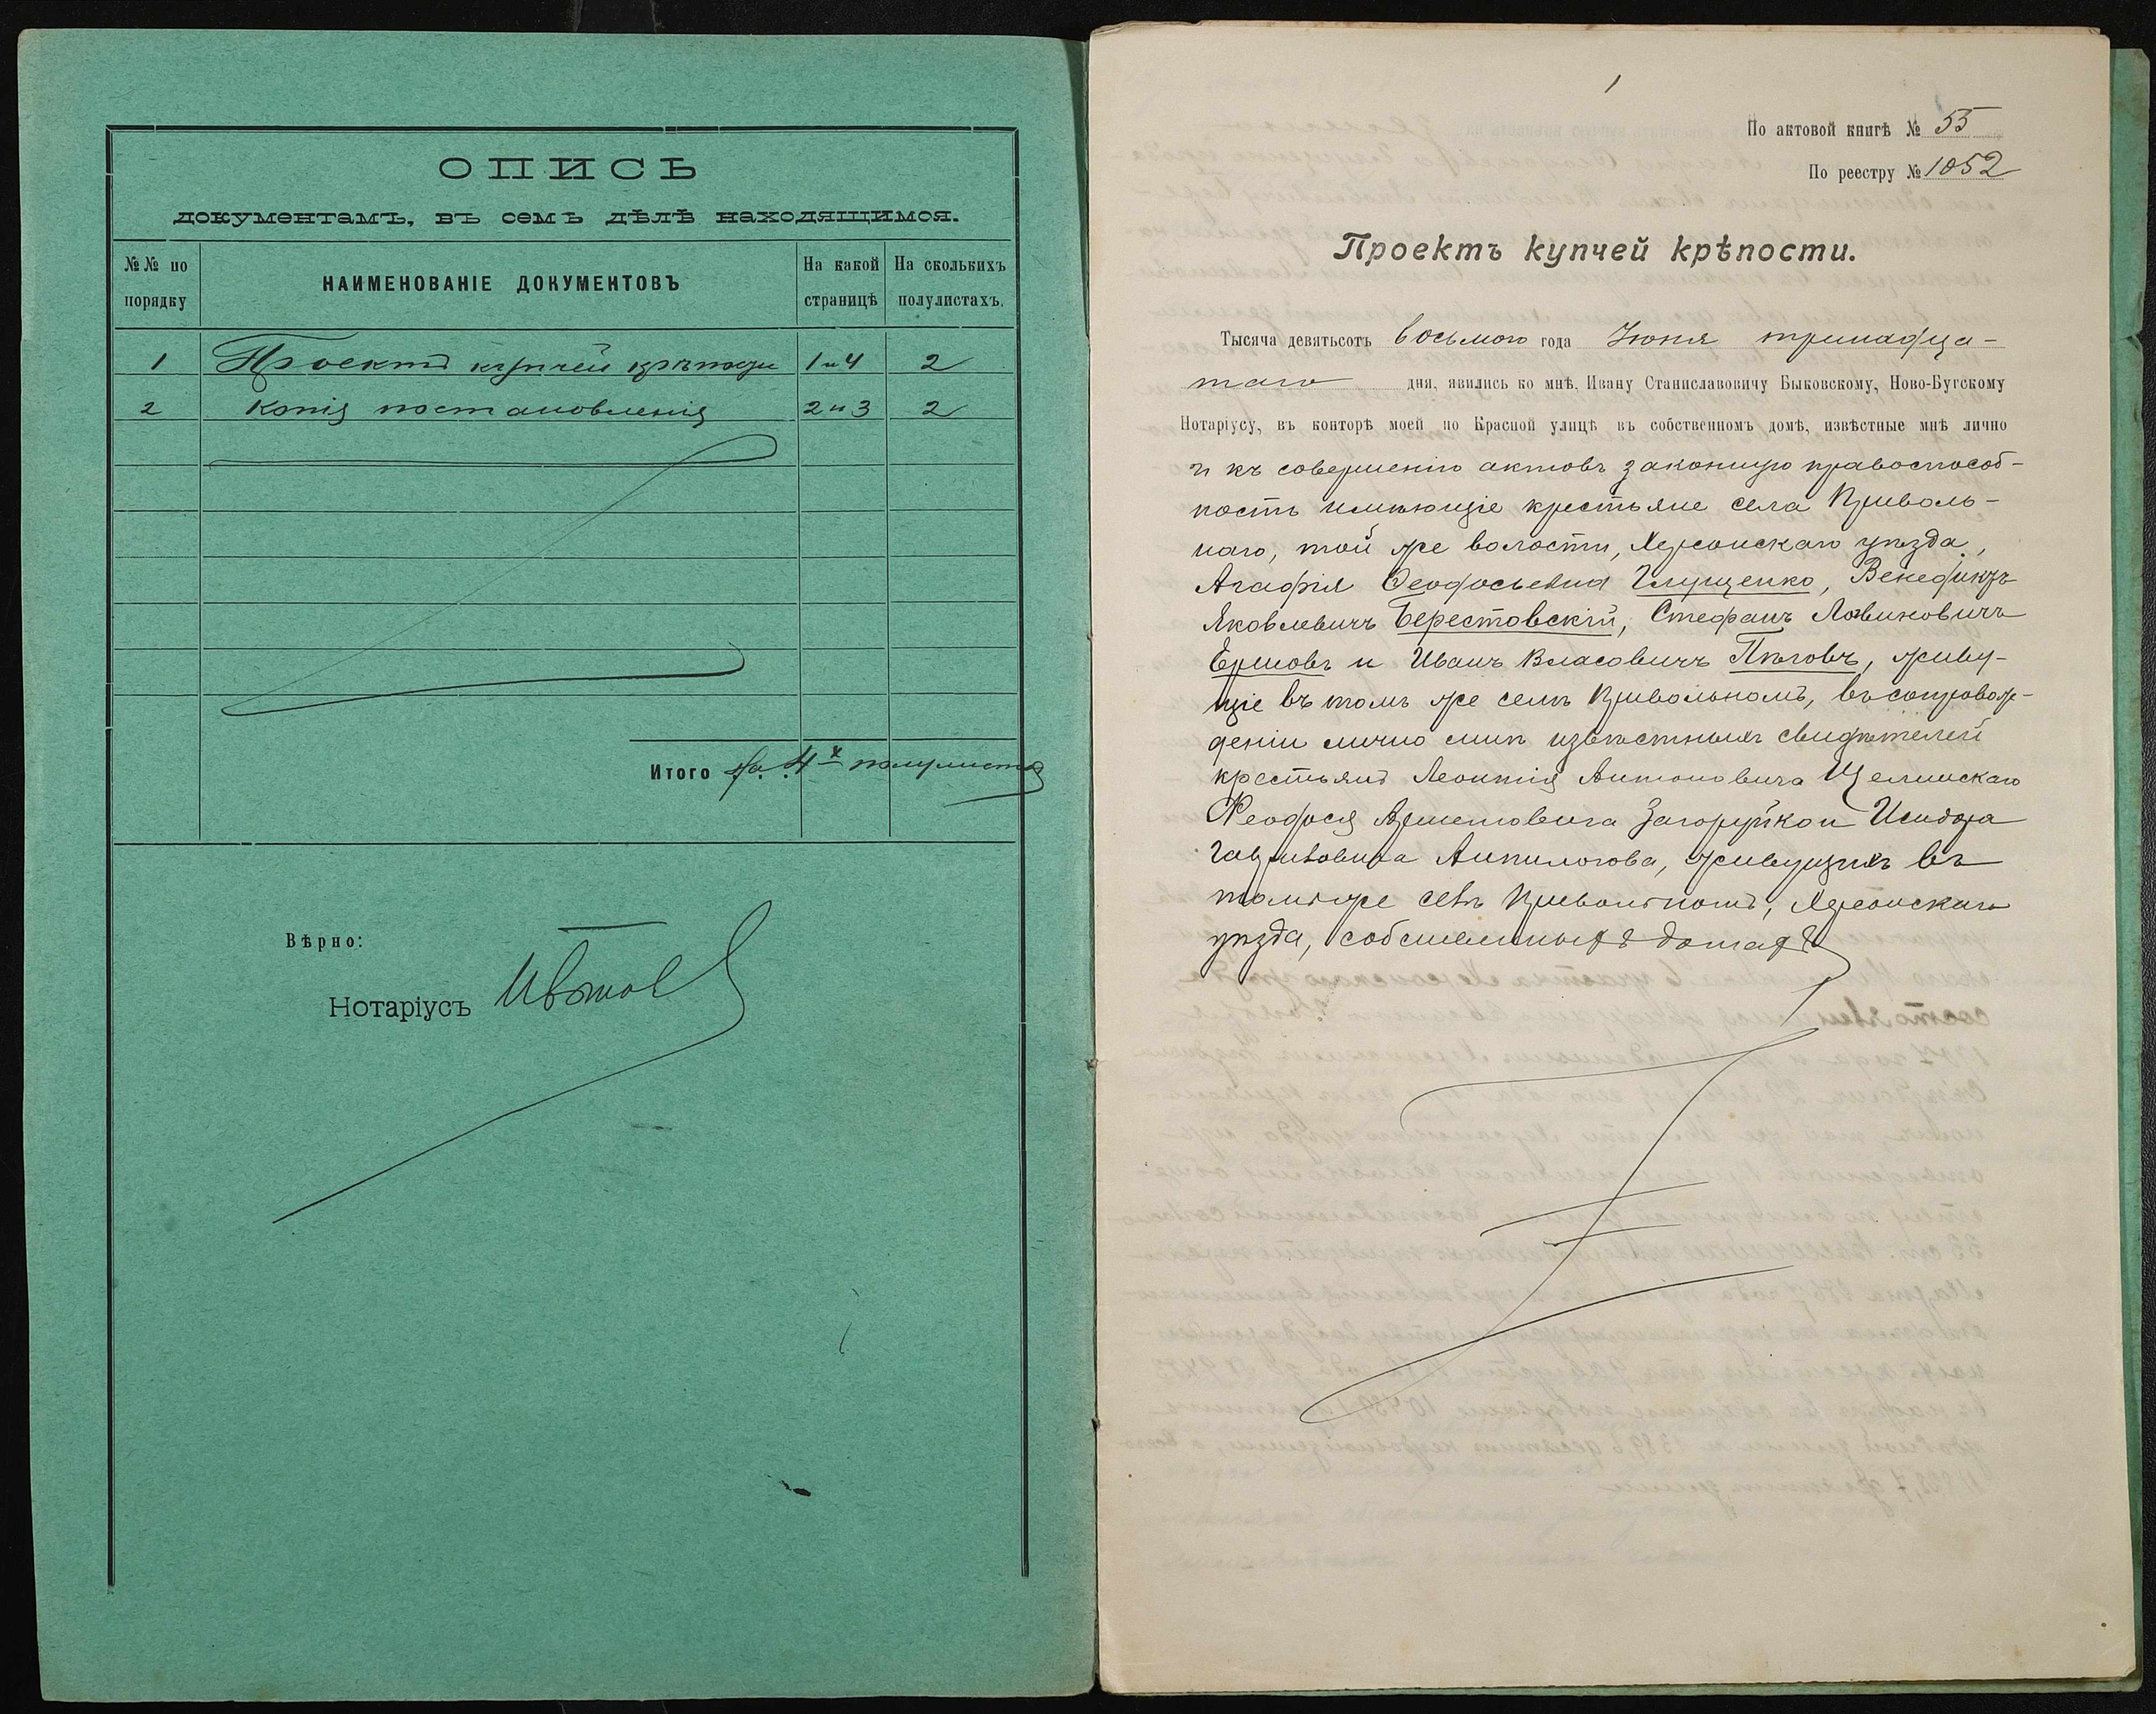 ОПИСЬ
документамъ, въ семъ дѣлѣ находящимся.
№№ по порядку
НАИМЕНОВАНІЕ ДОКУМЕНТОВЪ
На какой страницѣ
На сколькихъ полулистахъ.
1 Проектъ купчей крѣпости 1 и 4 2
2 Копія постановленія 2 и 3 2
Итого на 4х полулистахъ
Вѣрно:
Нотаріусъ
1
По актовой книгѣ № 55
По реестру № 1052
Проектъ купчей крѣпости.
Тысяча девятьсотъ восьмого года Іюня тринадца-
таго дня, явились ко мнѣ, Ивану Станиславовичу Быковскому, Ново-Бугскому
Нотаріусу, въ конторѣ моей по Красной улицѣ въ собственномъ домѣ, извѣстные мнѣ лично
и къ совершенію актовъ законную правоспособ-
ность имѣющіе крестьяне села Приволь-
наго, той же волости, Херсонскаго уѣзда,
Агафія Ѳеодосьевна Глущенко, Венедиктъ
Яковлевичъ Берестовскій, Стефанъ Логиновичъ
Ершовъ и Иванъ Власовичъ Пѣговъ, живу-
щіе въ томъ же селѣ Привольномъ, въ сопровож-
деніи лично мнѣ извѣстныхъ свидѣтелей
крестьянъ Леонтія Антоновича
Ѳеодосія Загоруйко и Исидора
Гавриловича Анпилогова, живущихъ въ
томъ же селѣ Привольномъ, Херсонскаго
уѣзда, собственныхъ домахъ